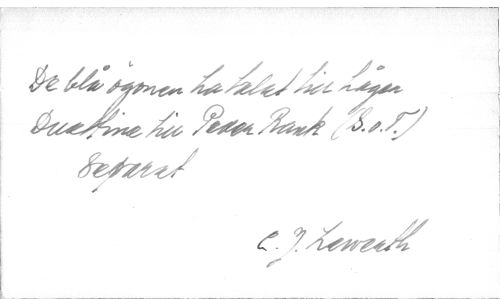 De blå ögonen ha talat till hågen
Duettino till Peder Rank (S.o.T.)
Separat
C. J. Lewerth